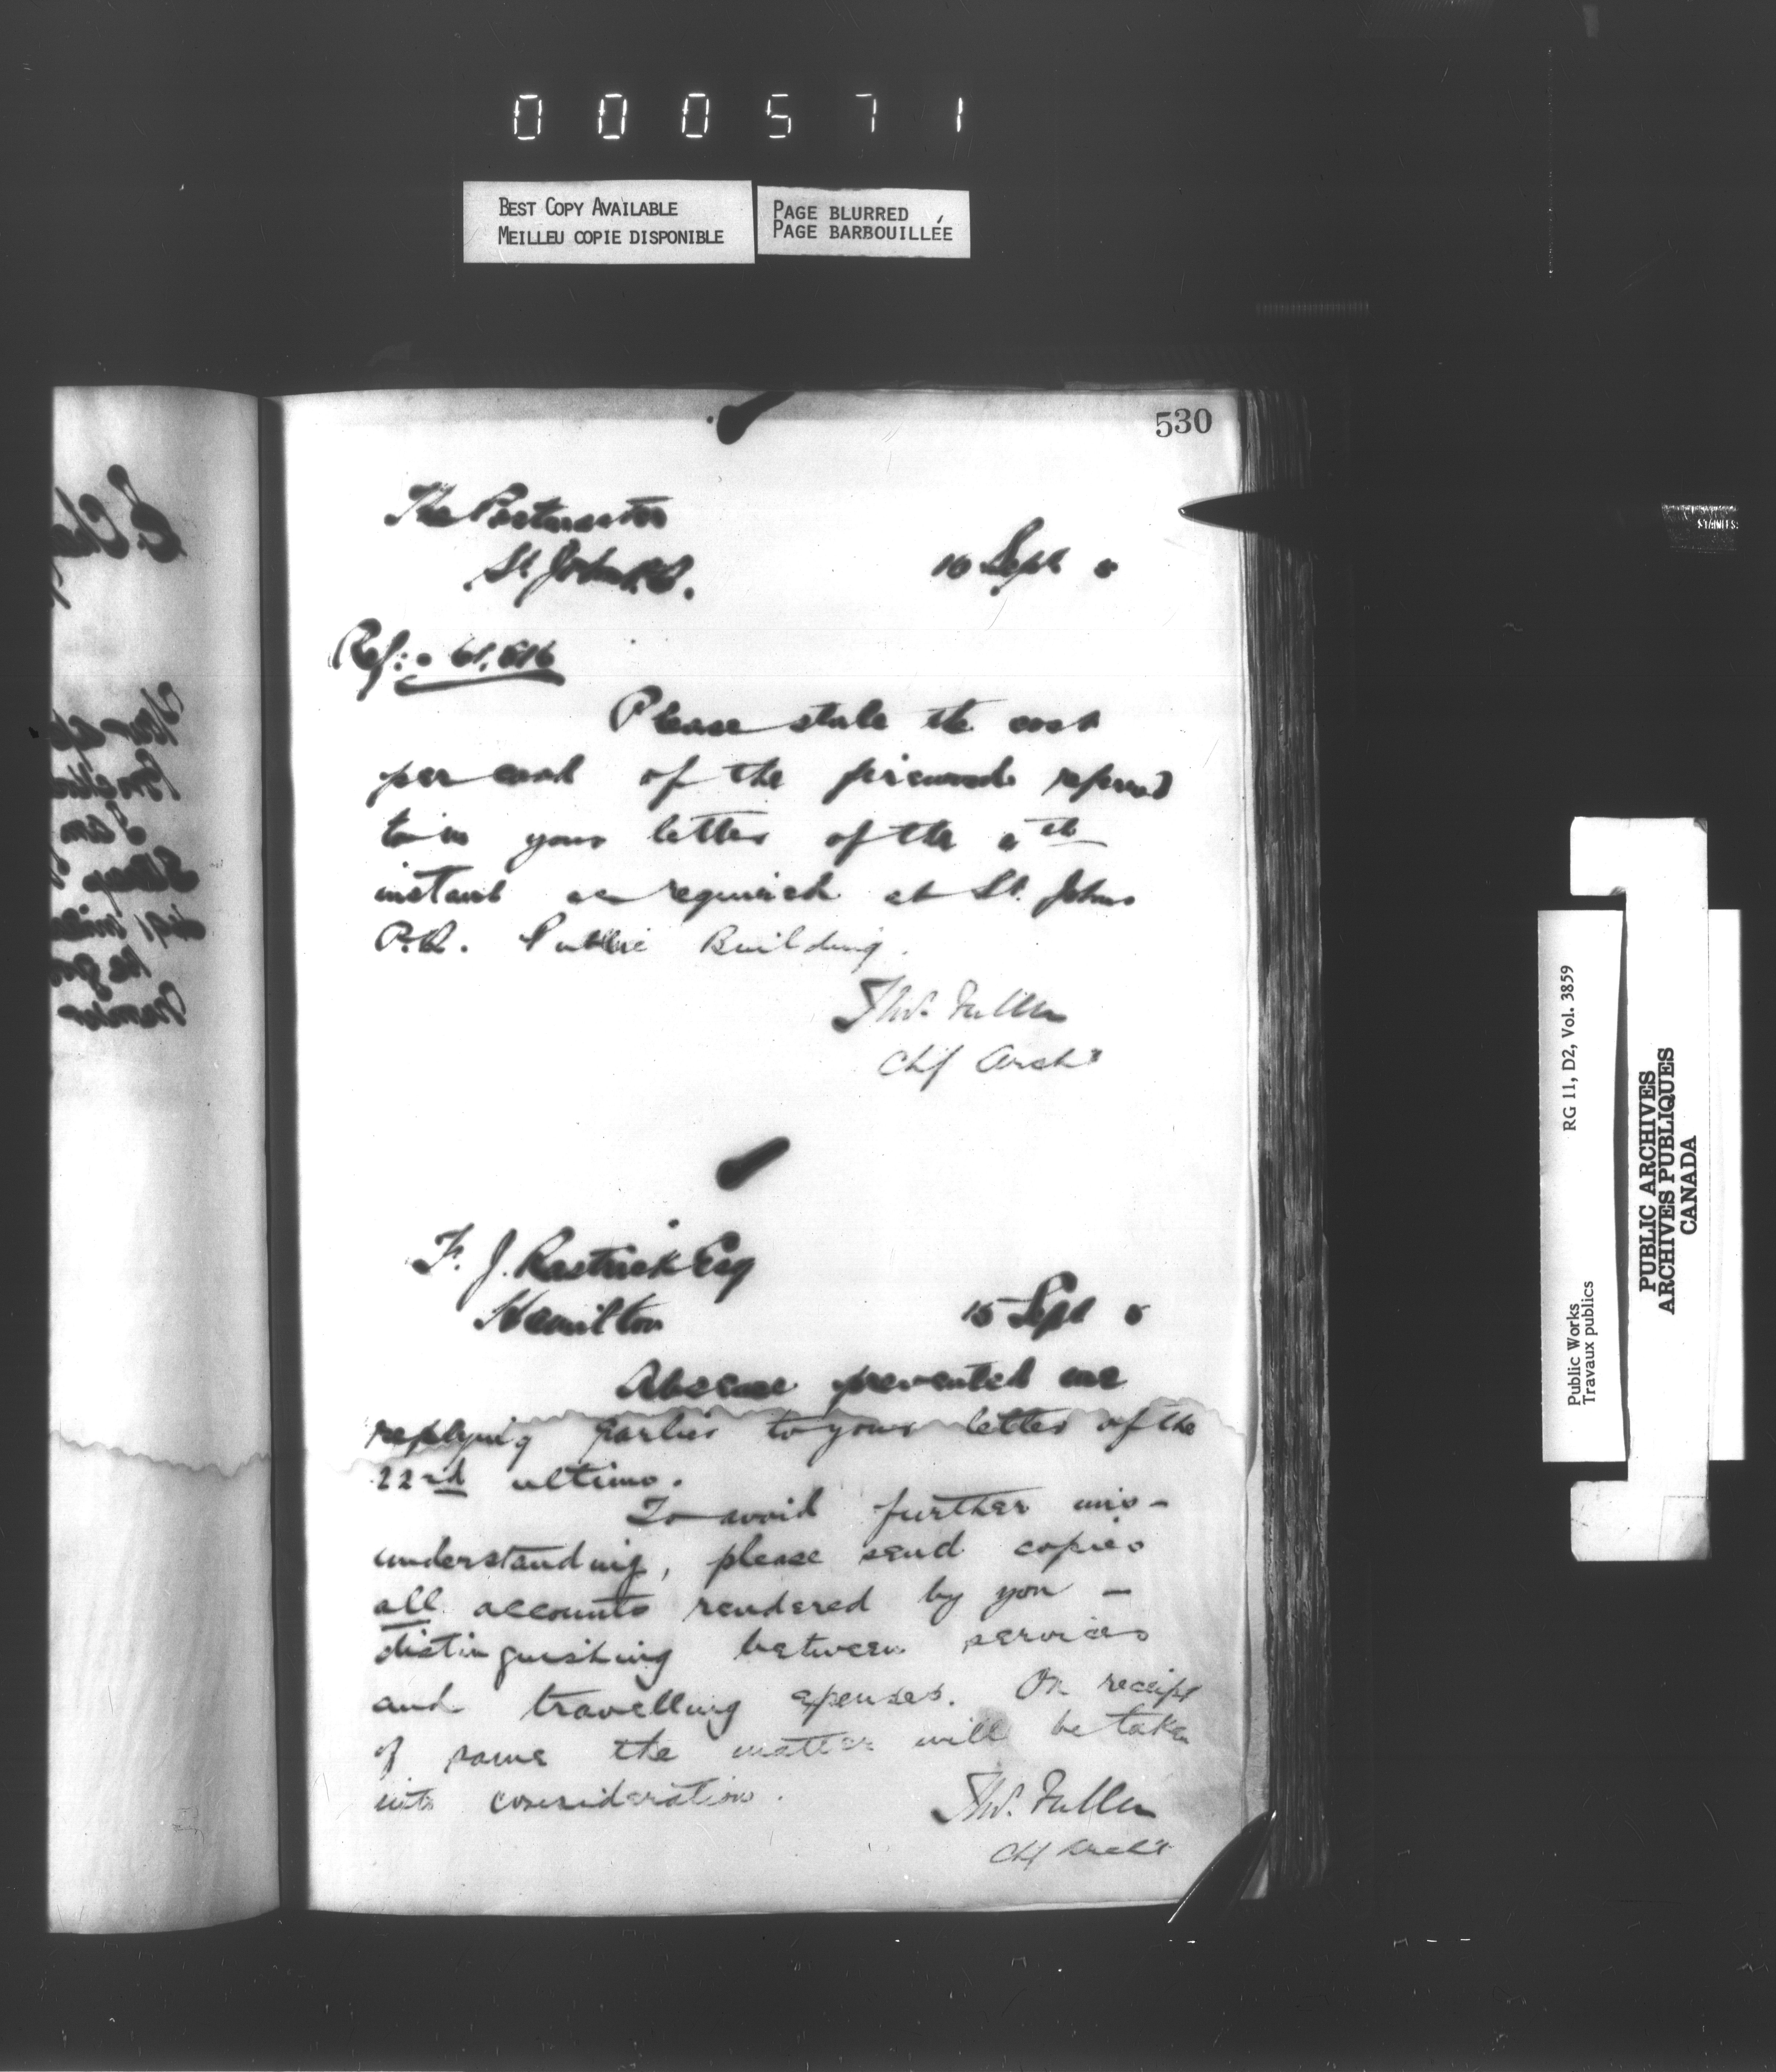 000571
BEST COPY AVAILABLE
MEILLEU COPIE DISPONIBLE
PAGE BLURRED
PAGE BARBOUILLÉE
530
The Postmaster
St. Johns P.Q.
Sept
Ref:-
Please state the cost
per cord of the firewood referred
to in your letter of the
instant as required at St. Johns
P.Q. Public Building.
Thos. Fuller
Chf Archt
F. J. Rastrick Esq
Hamilton
15 Sept
Absence prevented me
replying earlier to your letter of the
22nd ultimo.
To avoid further mis-
understanding, please send copies
all accounts rendered by you -
distinguishing between services
and travelling expenses. On receipt
of same the matter will be taken
into consideration.
Thos. Fuller
Chf Archt
RG 11, D2, Vol. 3859
Public Works
Travaux publics
PUBLIC ARCHIVES
ARCHIVES PUBLIQUES
CANADA